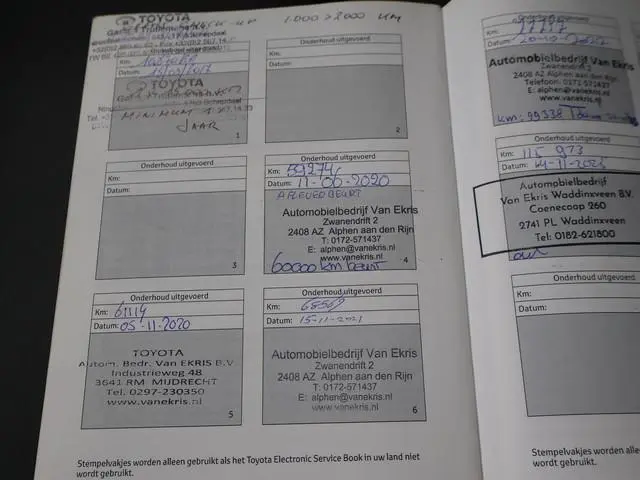 TOYOTA
1.000 > 2000 KM
Km:
Datum:
TOYOTA
MINIMUM 1
JAAR
1
Onderhoud uitgevoerd
Km:
Datum:
2
Onderhoud uitgevoerd
Km:
Datum:
3
Onderhoud uitgevoerd
Km: 59274
Datum: 11-06-2020
AFLEVERBEURT
Automobielbedrijf Van Ekris
Zwanendrift 2
2408 AZ Alphen aan den Rijn
T: 0172-571437
E: alphen@vanekris.nl
60000 km beurt
4
Onderhoud uitgevoerd
Km: 61114
Datum: 05-11-2020
TOYOTA
Autom. Bedr. Van EKRIS B.V.
Industrieweg 48
3641 RM MIJDRECHT
Tel. 0297-230350
www.vanekris.nl
5
Onderhoud uitgevoerd
Km:
Datum: 15-11-2021
Automobielbedrijf Van Ekris
Zwanendrift 2
2408 AZ Alphen aan den Rijn
T: 0172-571437
E: alphen@vanekris.nl
www.vanekris.nl
6
Stempelvakjes worden alleen gebruikt als het Toyota Electronic Service Book in uw land niet
wordt gebruikt.
Automobielbedrijf Van Ekris
Zwanendrift 2
2408 AZ Alphen aan den
Telefoon: 0172-571437
E: alphen@vanekris.nl
km: 99338
Onderhoud uitgevoerd
Km: 115 973
Datum:
Automobielbedrijf
Van Ekris Waddinxveen B.V.
Coenecoop 260
2741 PL Waddinxveen
Tel: 0182-621800
Onderhoud uitgevoerd
Km:
Datum:
Stempelvakjes worden
wordt gebruikt.